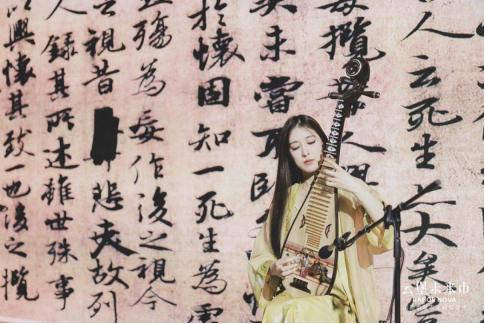 人云死生亦大矣
每攬
人
未嘗不
於懷固知一死生為
殤為妄作後之視今
視昔悲夫故列
錄其所述雖世殊事
以興懷其致一也後之攬
云堡未来市
VAPOR NOVA